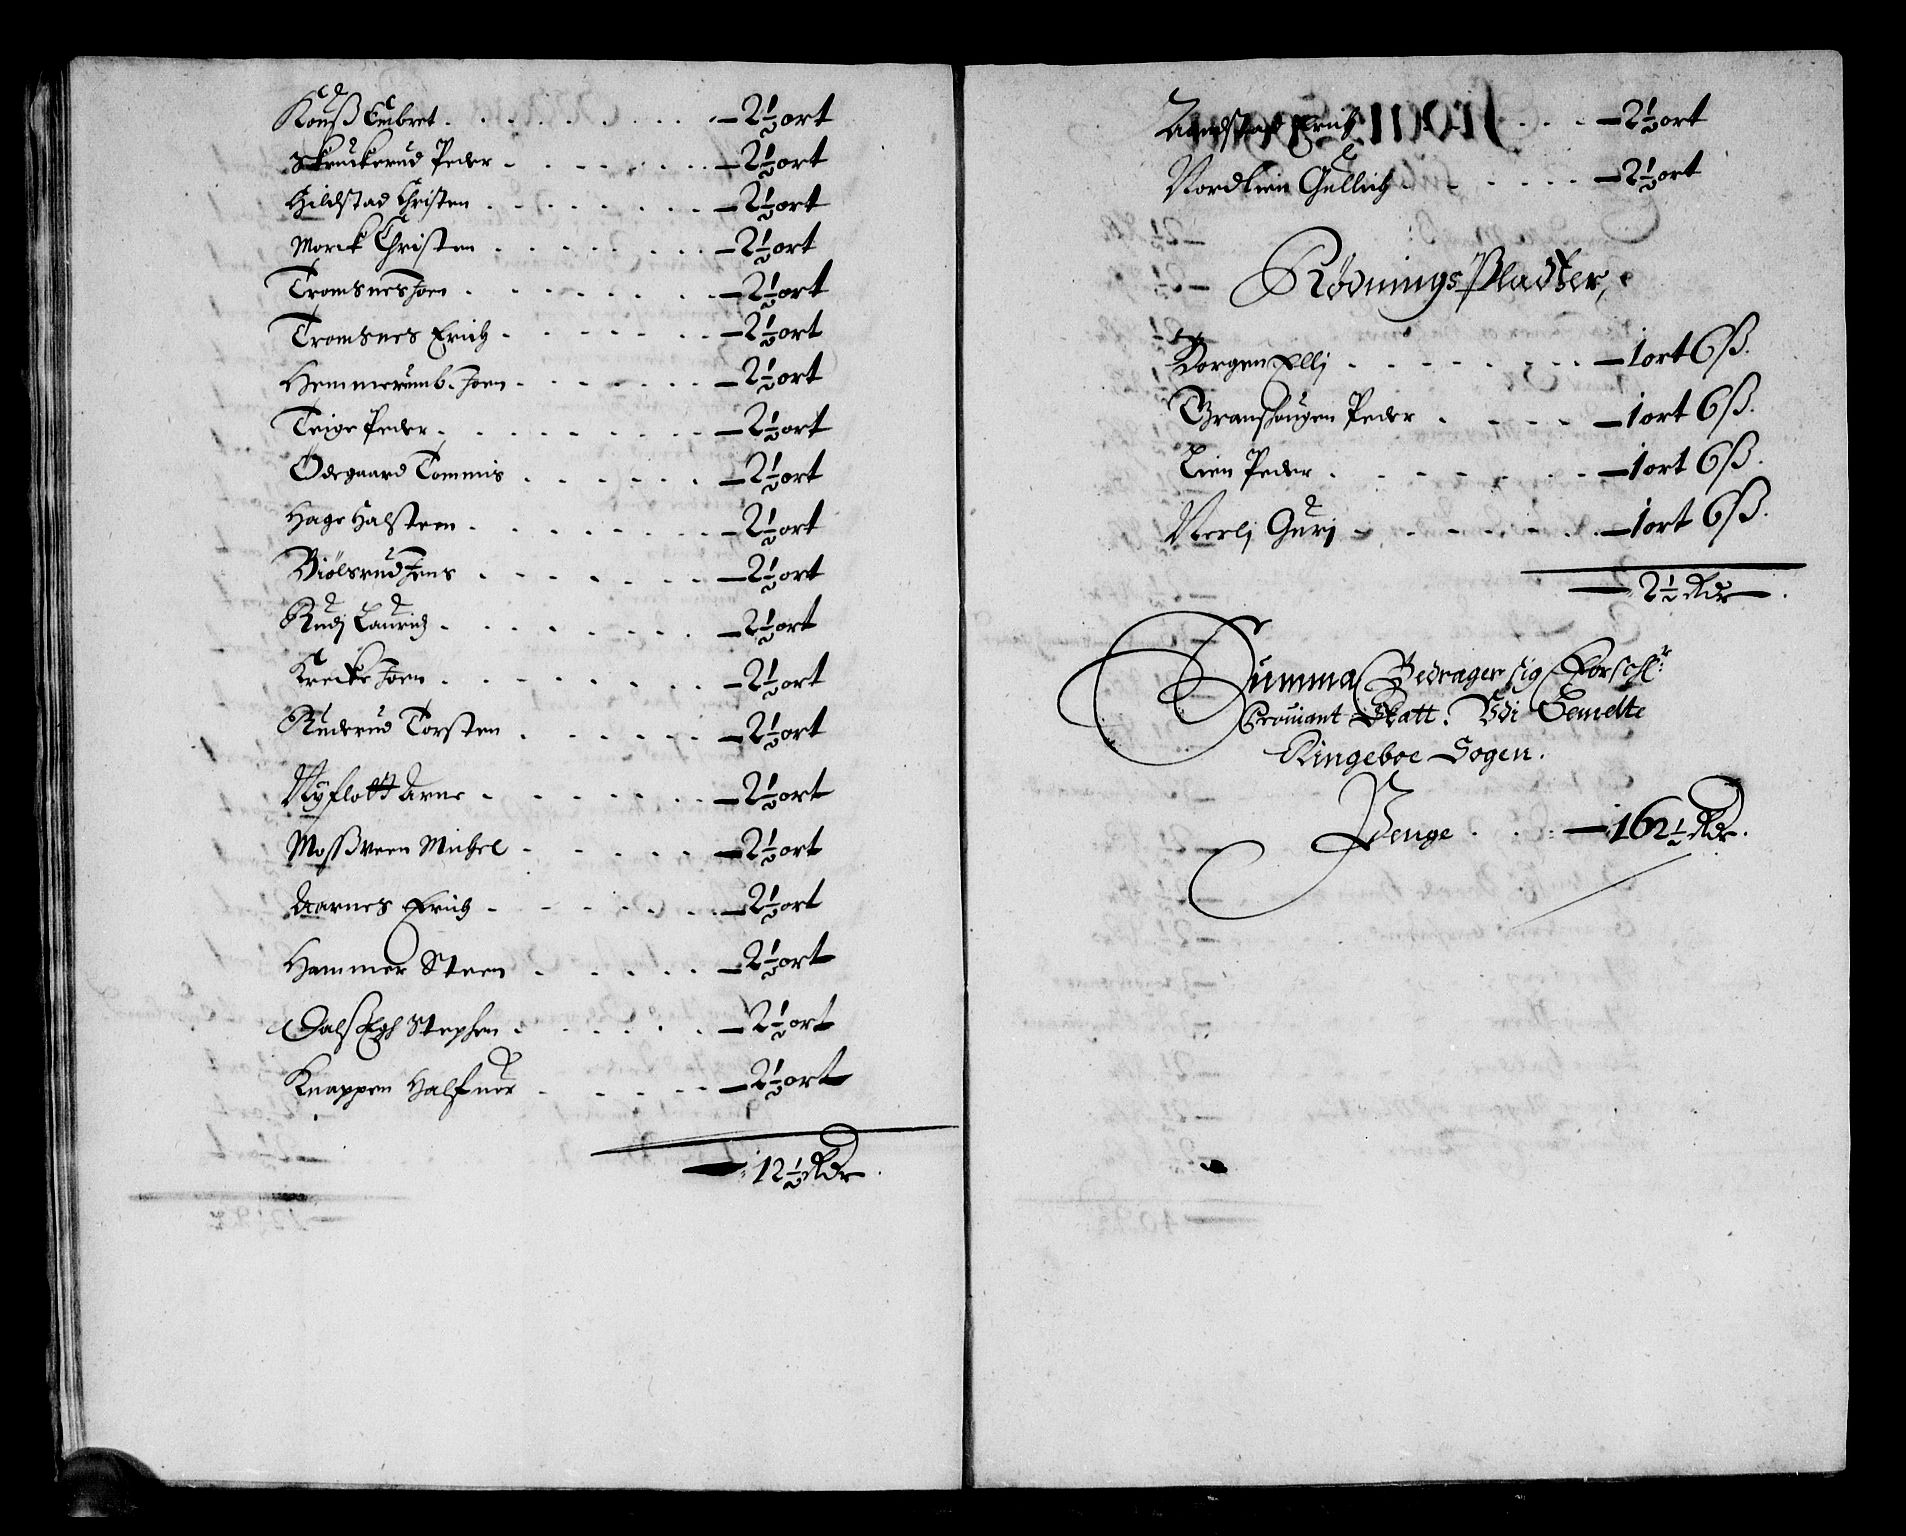 Kouß Embret - - - - - - - - 2½ ort
Skruckerud Peder - - - - - - 2½ ort
Hildstad Christen - - - - - - 2½ ort
Morck Christen - - - - - - 2½ ort
Tromsnes Joen - - - - - - 2½ ort
Tromsnes Erich - - - - - - 2½ ort
Hemmerumb. Joen - - - - - 2½ ort
Teige Peder - - - - - - - 2½ ort
Ödegaard Tommis - - - - - 2½ ort
Hage Halsteen - - - - - - 2½ ort
Biölsrud Jens - - - - - - 2½ ort
Rudj Laurich - - - - - - 2½ ort
Krecke Joen - - - - - - - 2½ ort
Ruderud Torsten - - - - - 2½ ort
Nyflott Arne - - - - - - 2½ ort
Moßveen Michel - - - - - 2½ ort
Aarnes Erich - - - - - - 2½ ort
Hammer Steen - - - - - 2½ ort
Dalsegh Stephen - - - - - 2½ ort
Knappen Halfuor - - - - - 2½ ort
12½ Rdr.
Erich - - - 2½ ort
Nordlien Gullich - - - - - 2½ ort
Rödnings Pladtzer,
Dorgen Ellj - - - - - - 1 ort 6 ß.
Granshougen Peder - - - - 1 ort 6 ß.
Lien Peder - - - - - - 1 ort 6 ß.
Nerlj Gurj - - - - - - 1 ort 6 ß.
2½ Rdr.
Summa Bedrager sig Forschr:
Prouiant Skatt. Vdi Bemelte
Ringeboe Sogen.
Penge - - - 162½ Rdr.